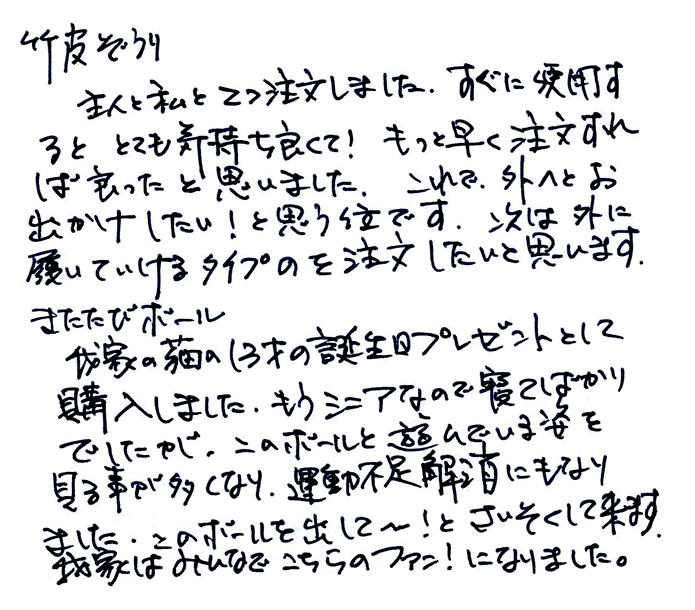 竹皮ぞうり
主人と私と2つ注文しました。すぐに使用す
ると とても気持ち良くて！ もっと早く注文すれ
ば良ったと思いました。 これで、外へとお
出かけしたい！と思う位です。次は外に
履いていけるタイプのを注文したいと思います。
またたびボール
我家の猫の13才の誕生日プレゼントとして
購入しました。もうシニアなので寝てばかり
でしたが、このボールと遊んでいる姿を
見る事が多くなり、運動不足解消にもなり
ました。このボールを出して～！とさいそくして来ます。
我家はみんなでこちらのファン！になりました。